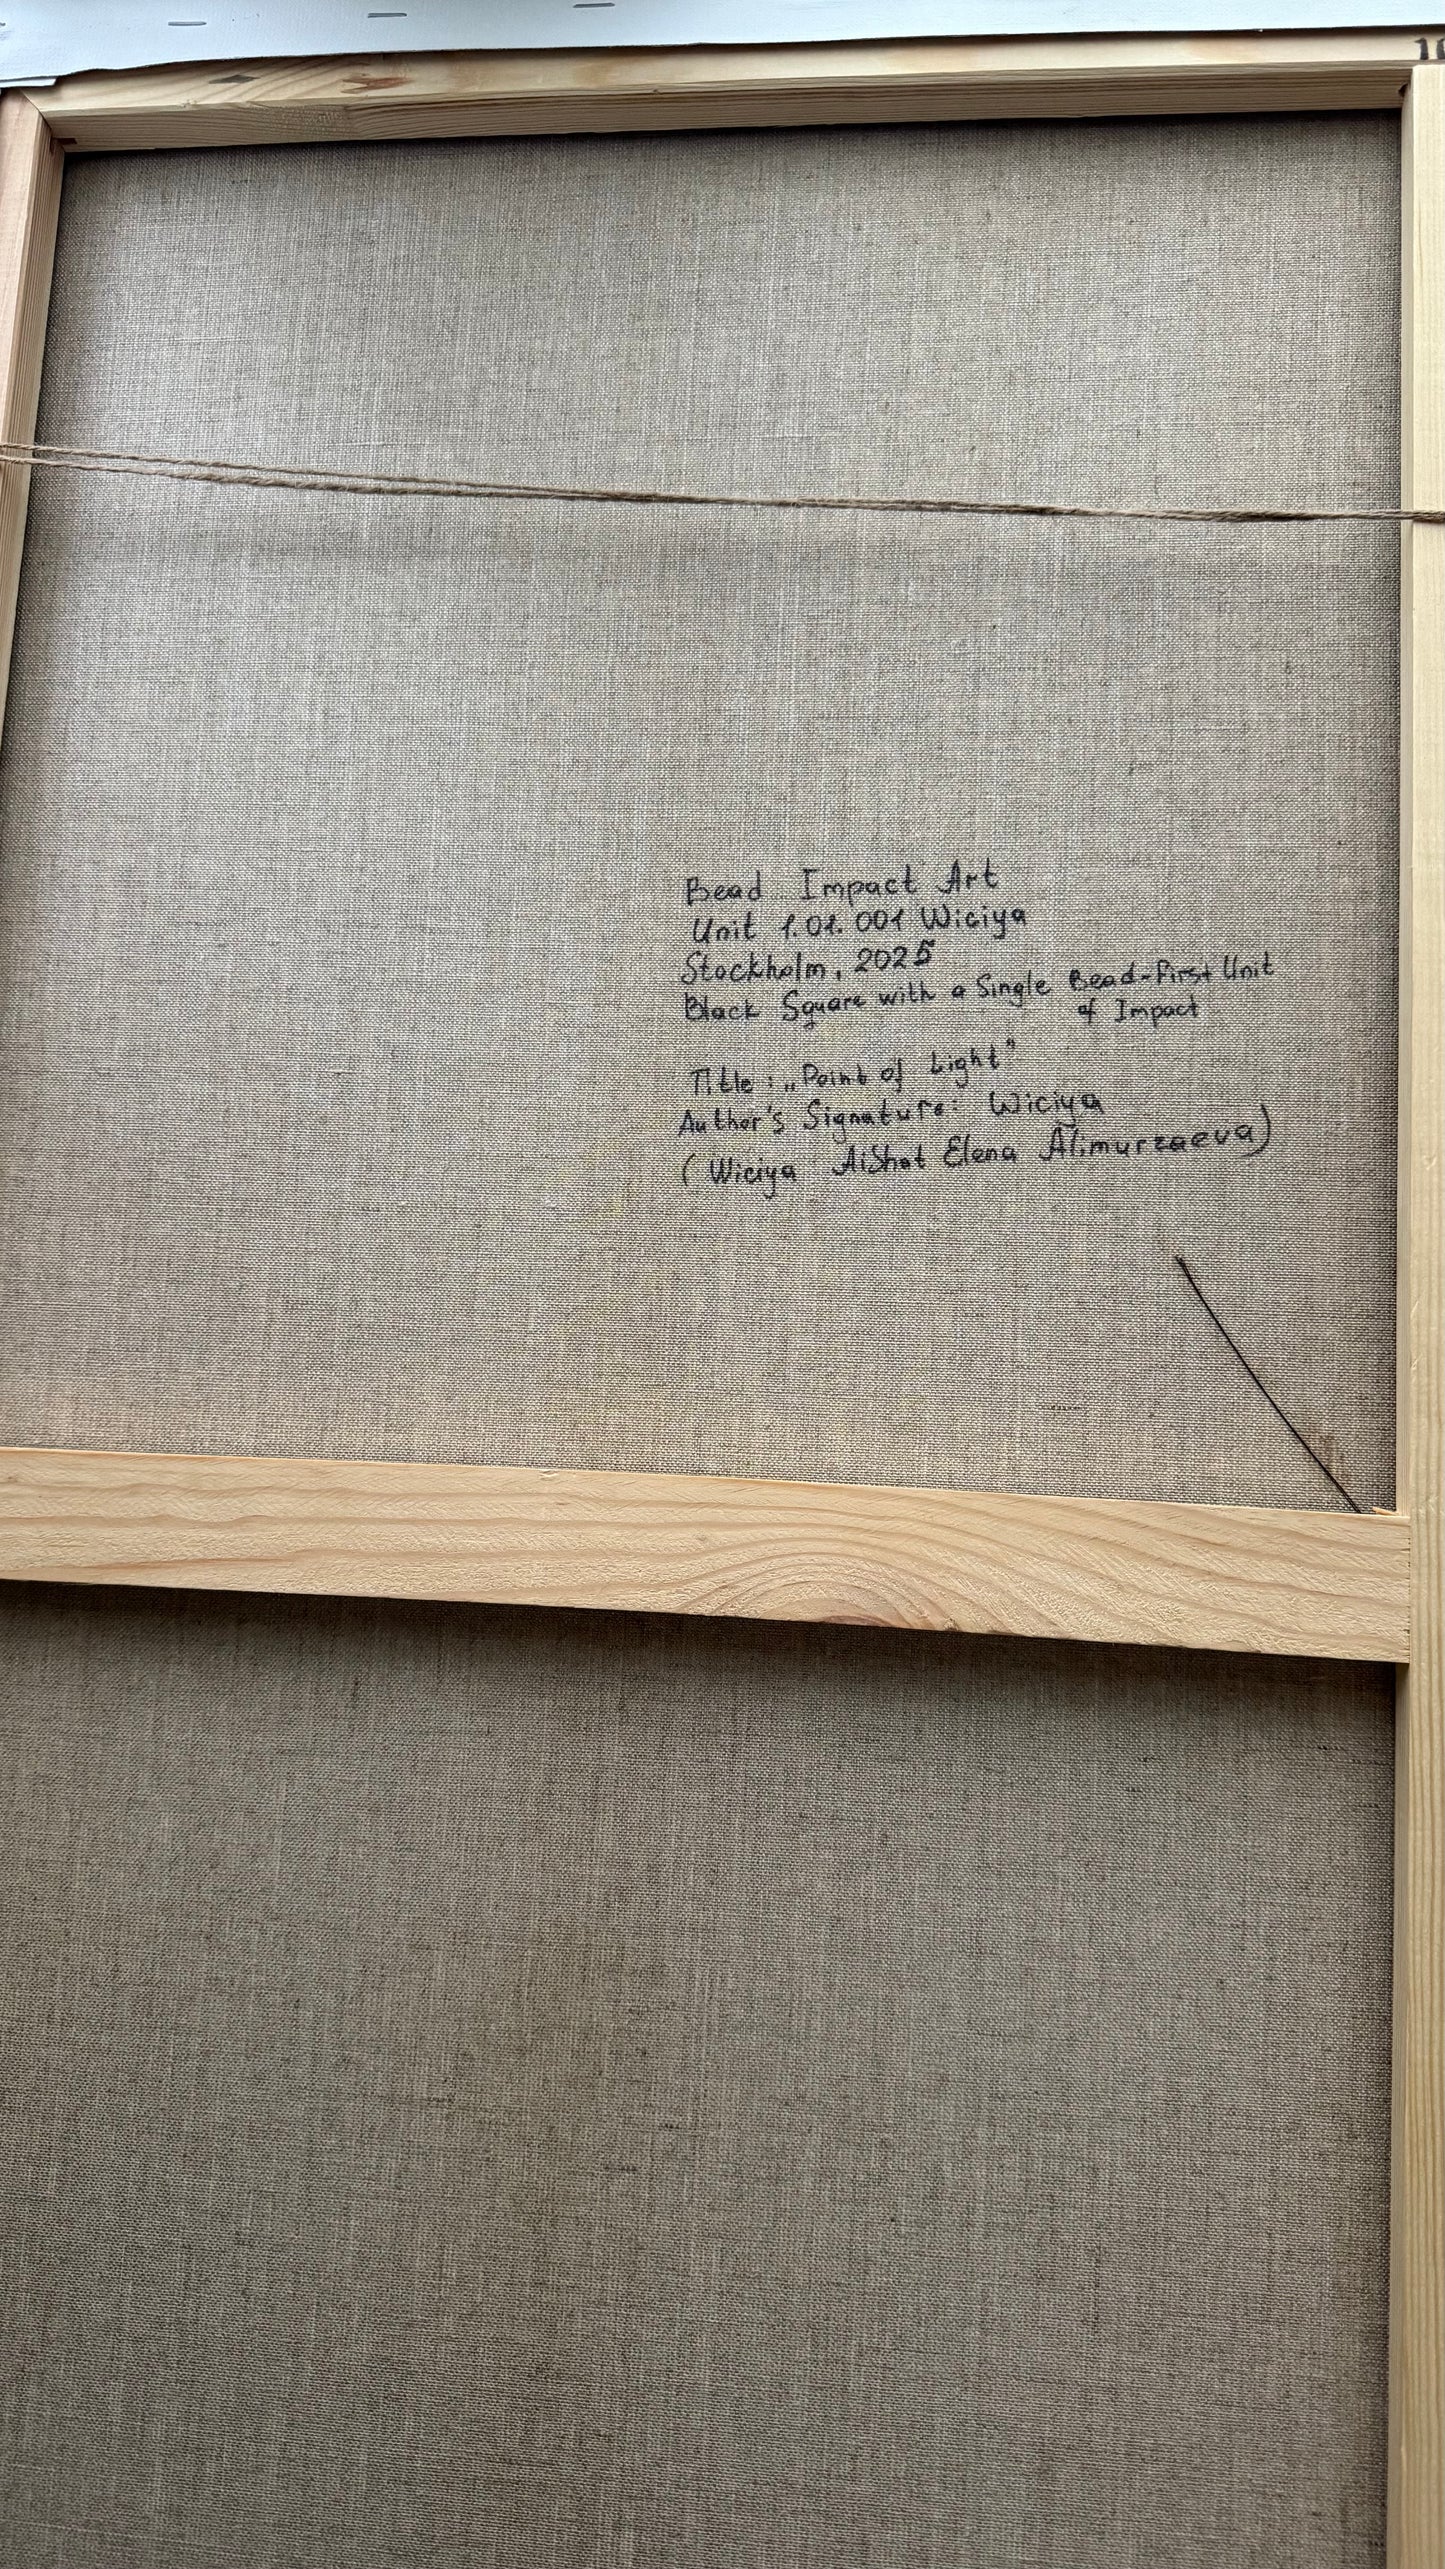 Bead Impact Art
Unit 1.01.001 Wiciya
Stockholm, 2025
Black Square with a Single Bead-First Unit
of Impact
Title: „Point of Light"
Author's Signature: Wiciya
(Wiciya Aishat Elena Alimurzaeva)